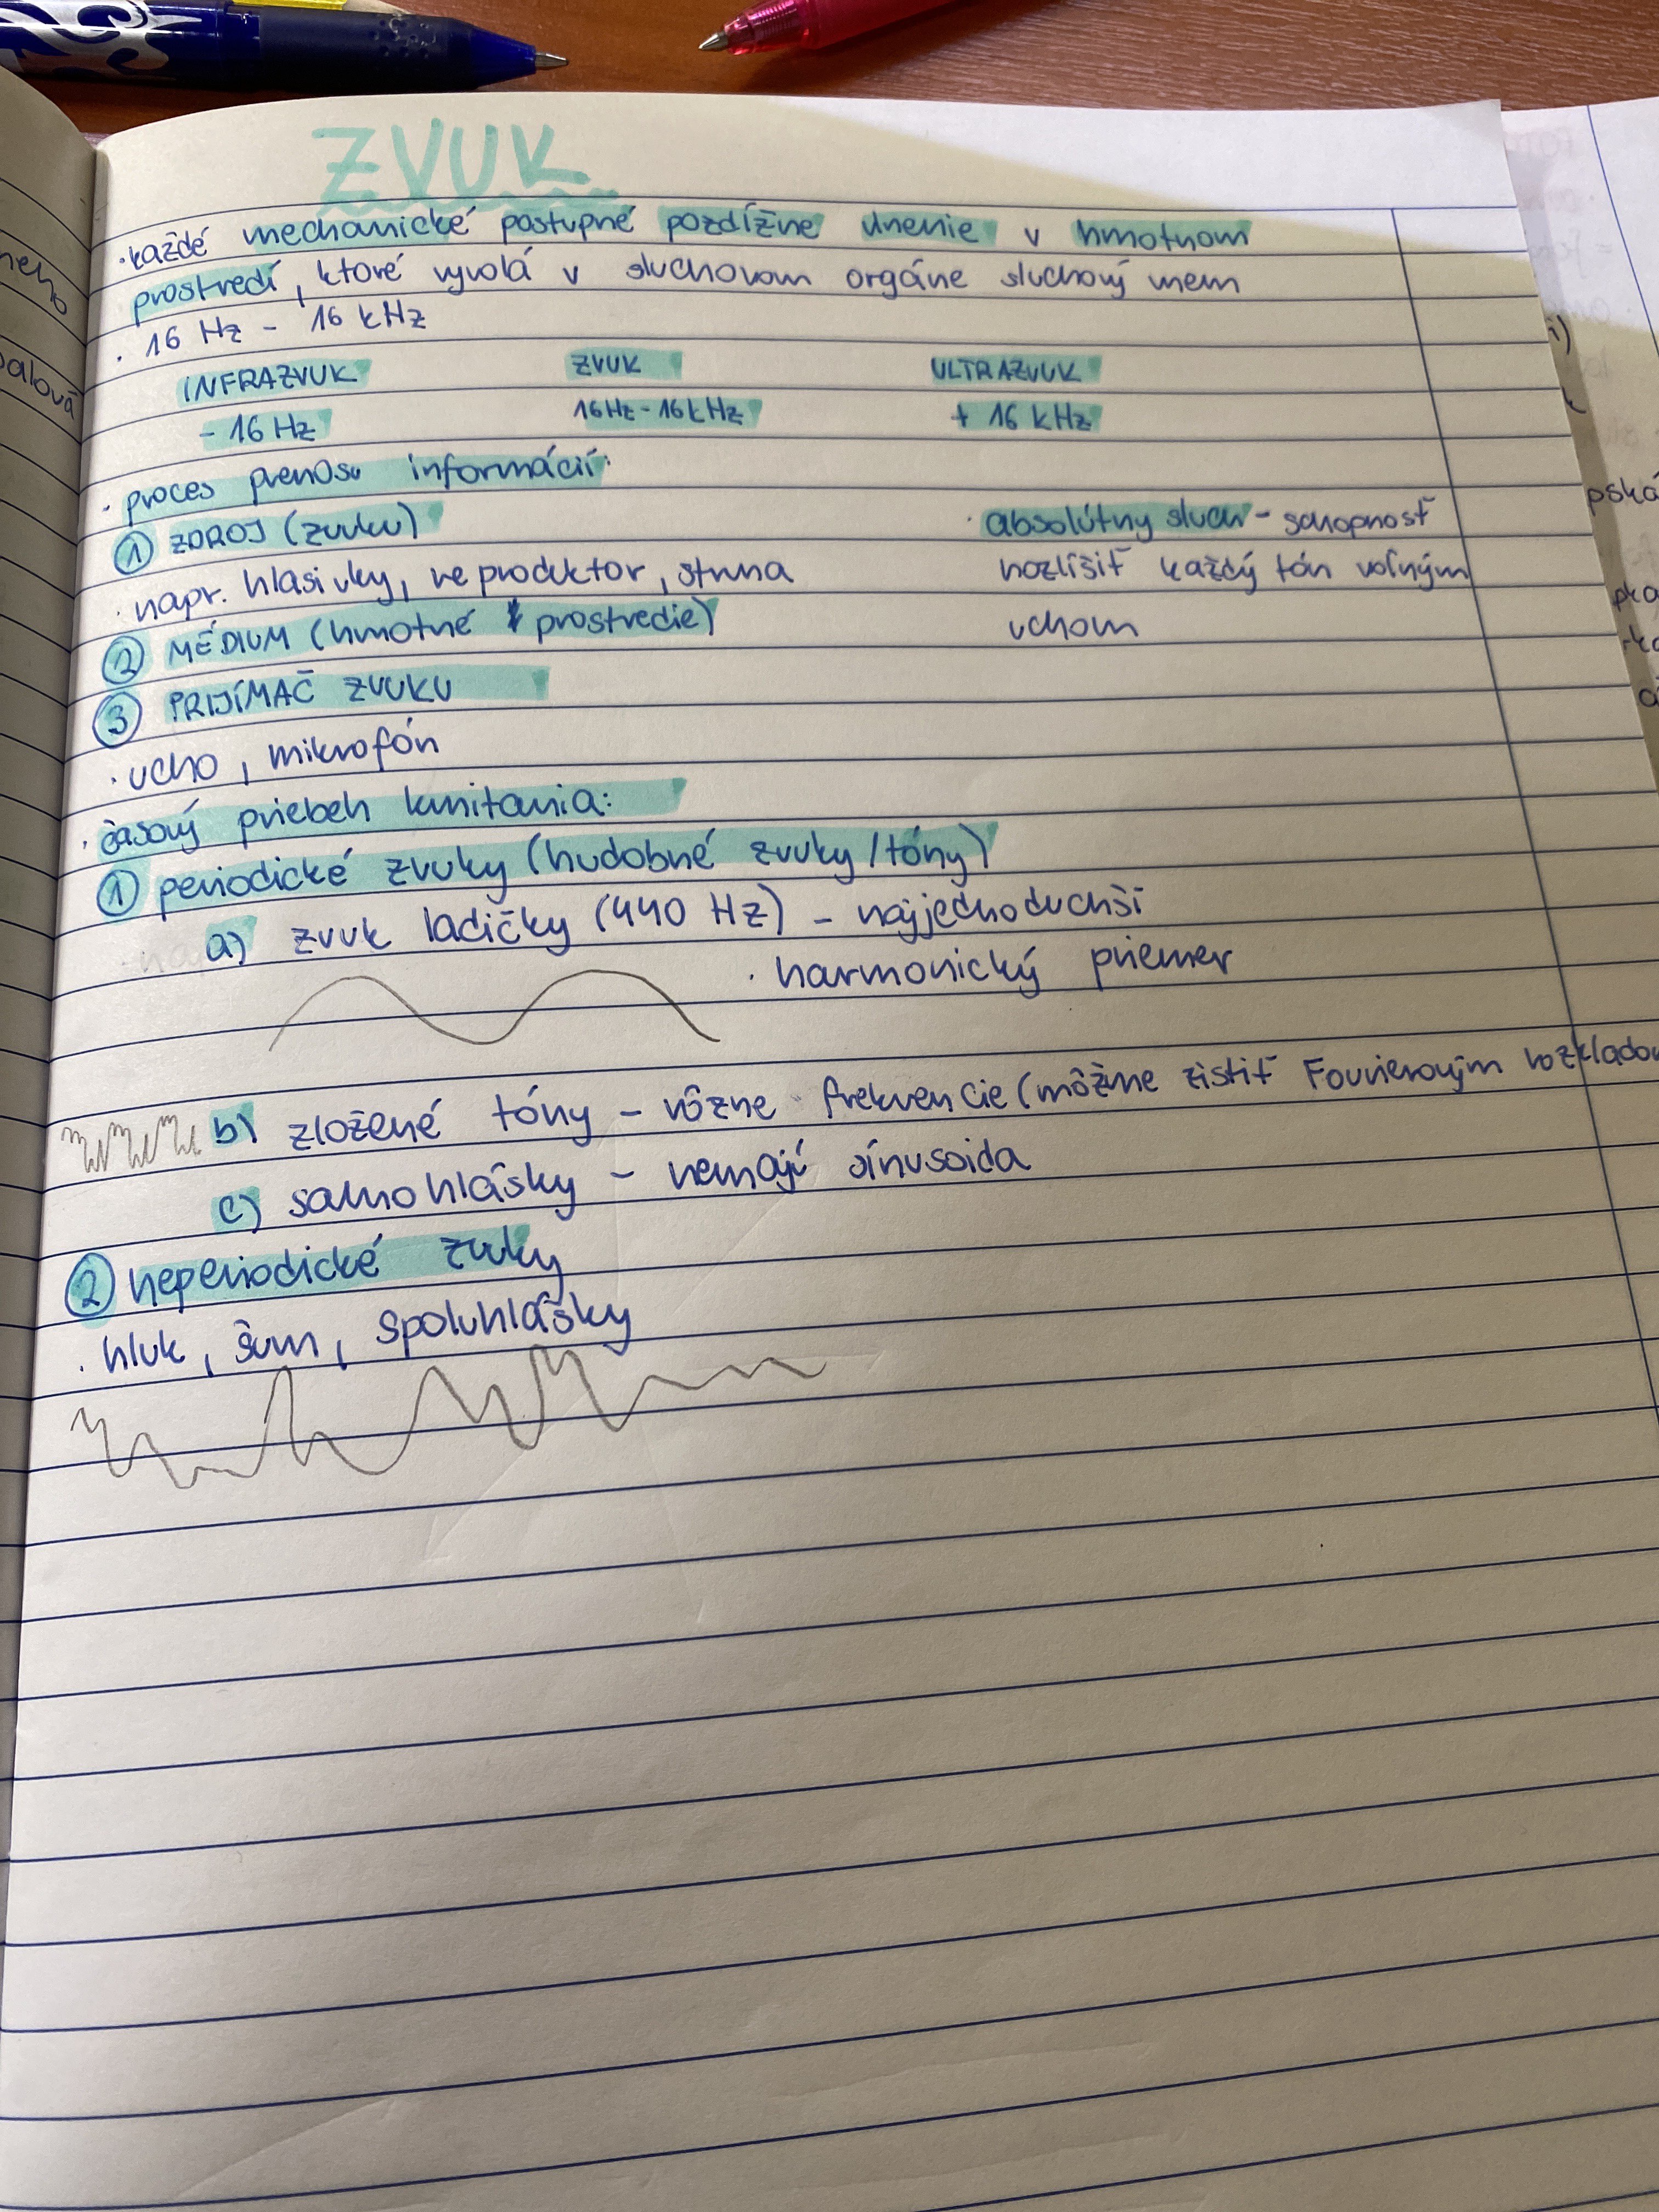 ZVUK
· každé mechanické postupné pozdĺžne vlnenie v hmotnom
prostredí, ktoré vyvolá v sluchovom orgáne sluchový vnem
· 16 Hz - 16 kHz
INFRAZVUK ZVUK ULTRAZVUK
- 16 Hz 16Hz - 16kHz + 16 kHz
· proces prenosu informácií:
① ZDROJ (zvuku)
· napr. hlasivky, reproduktor, struna
· absolútny sluch - schopnosť
rozlíšiť každý tón voľným
uchom
② MÉDIUM (hmotné prostredie)
③ PRIJÍMAČ ZVUKU
· ucho, mikrofón
· časový priebeh kmitania:
① periodické zvuky (hudobné zvuky / tóny)
a) zvuk ladičky (440 Hz) - najjednoduchší
· harmonický priemer
b) zložené tóny - rôzne frekvencie (môžme zistiť Fourierovým rozkladom
c) samohlásky - nemajú sínusoida
② neperiodické zvuky
· hluk, šum, spoluhlásky
neho
palová